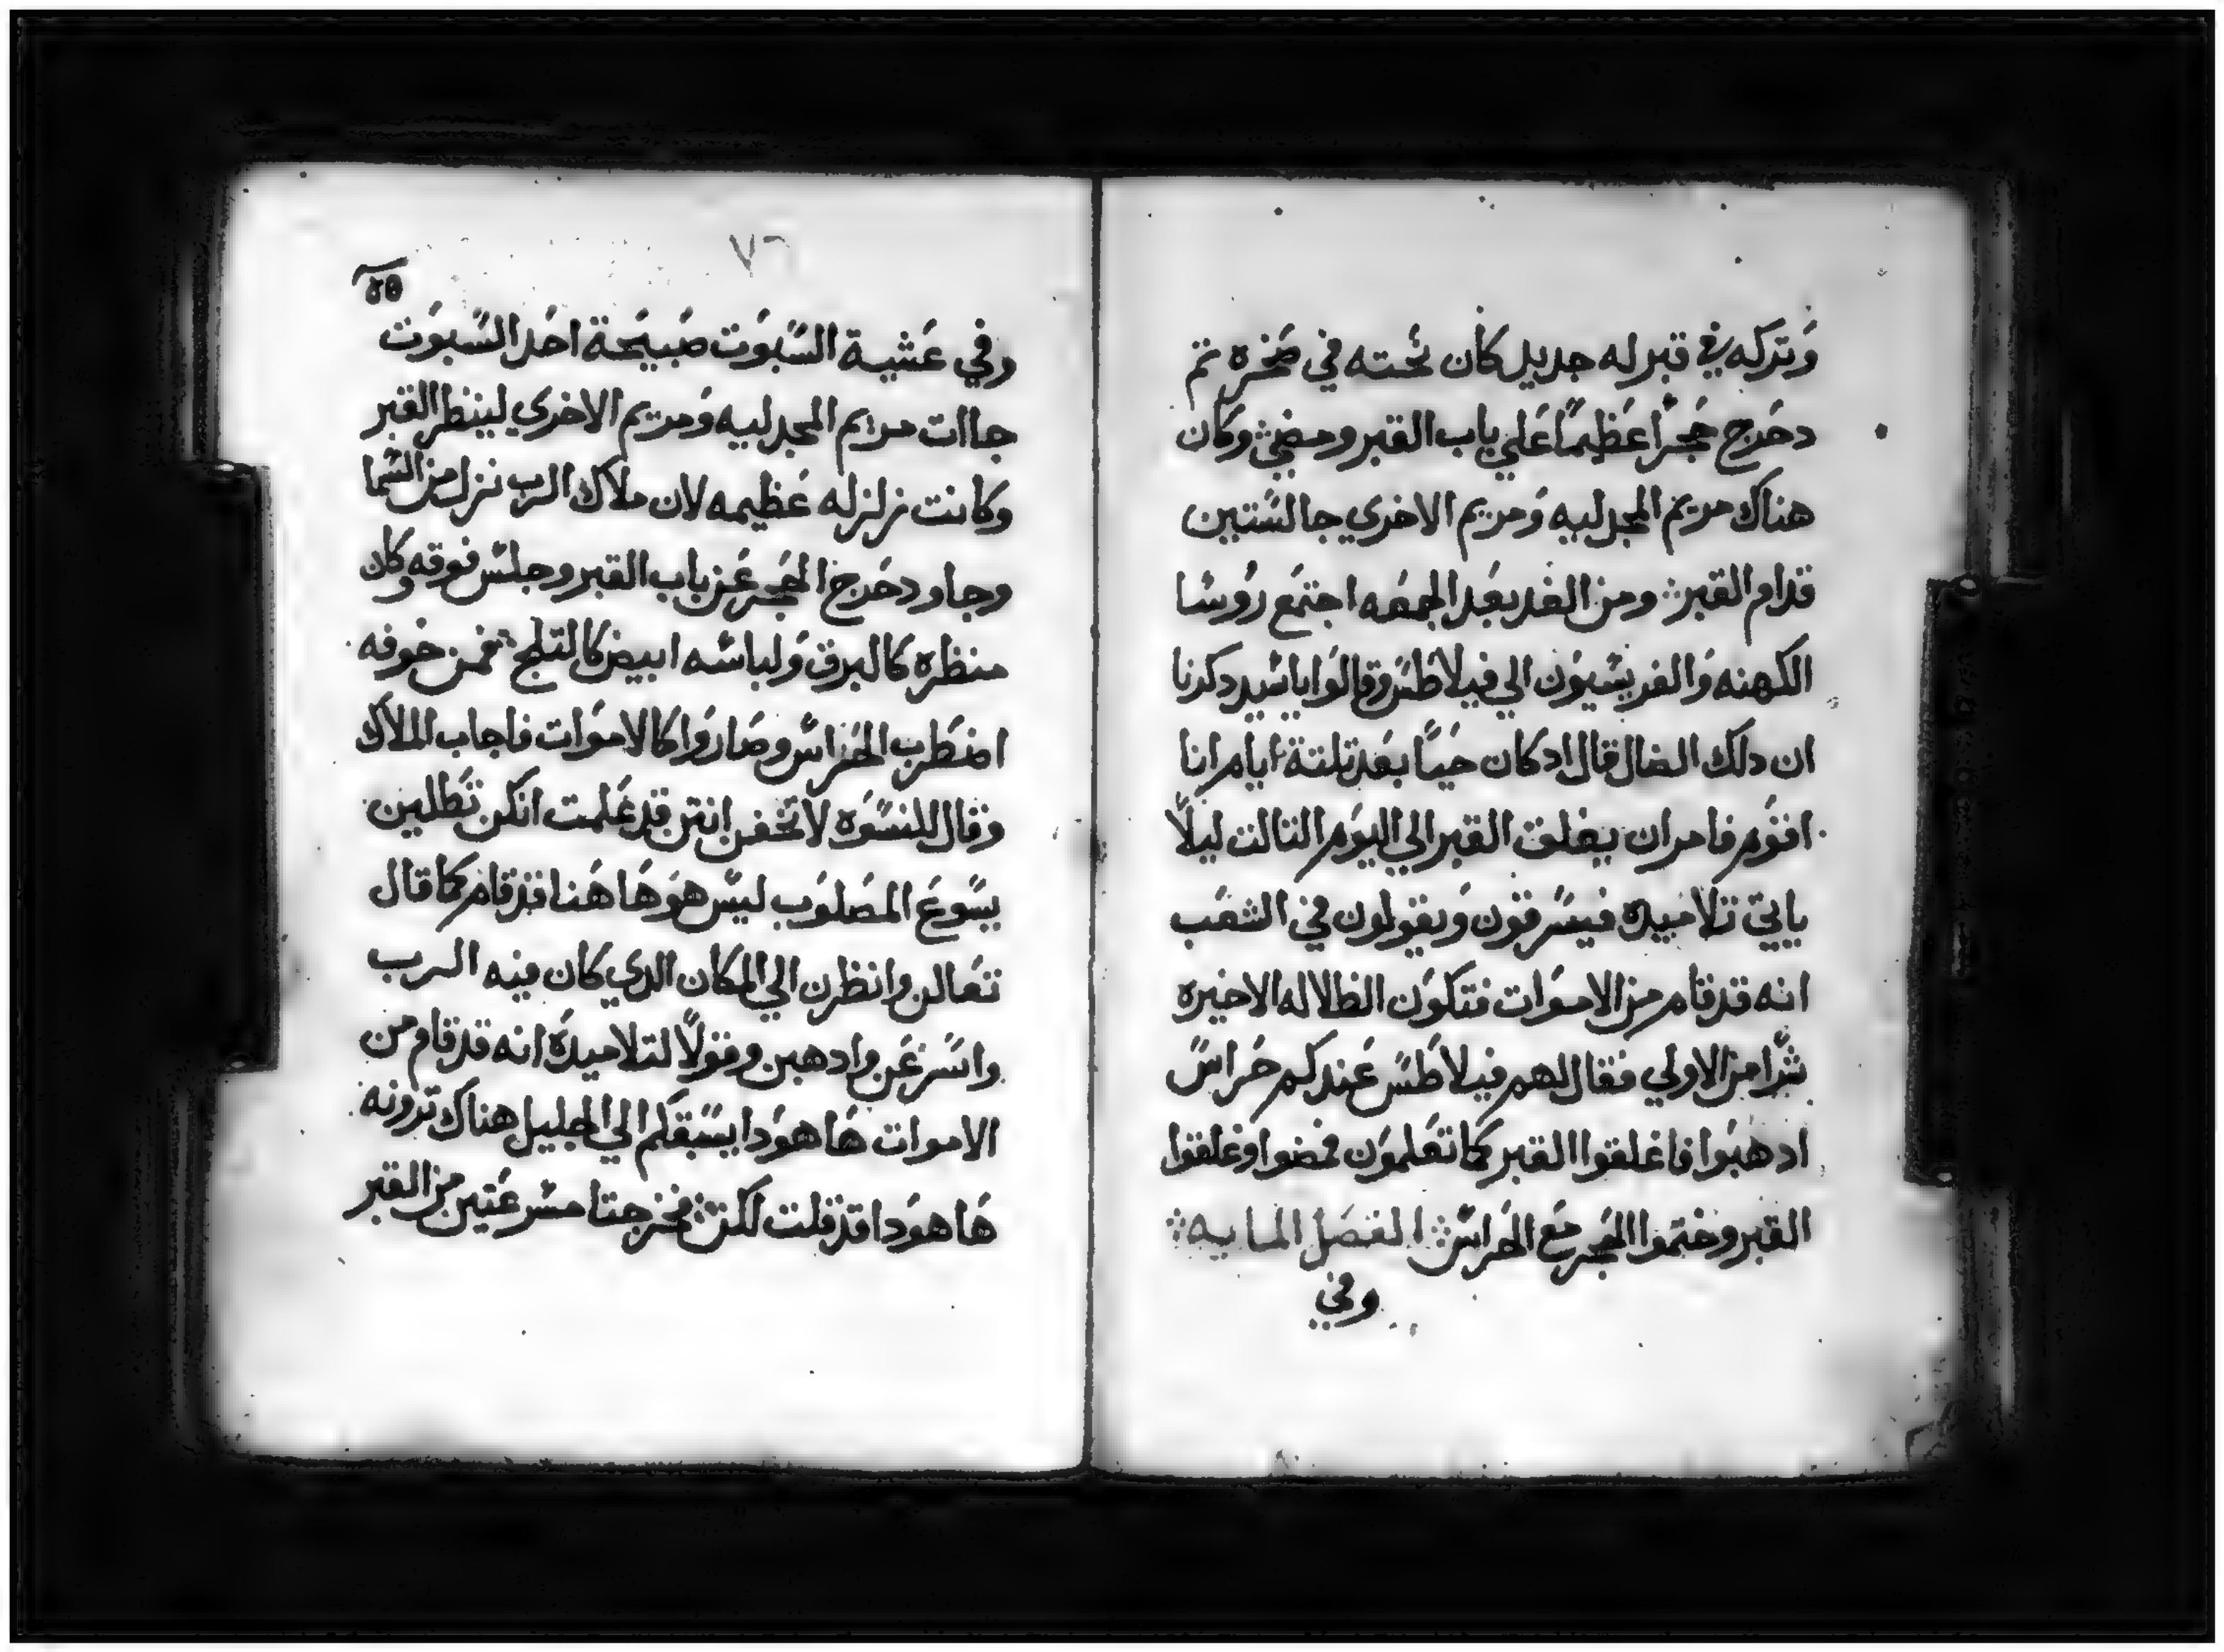 وتركه في قبر له جديد كان نحته في صخره تم
دحرج حجرا عظيما علي باب القبر ومضي وكان
هناك مريم المجدليه ومريم الاخري جالستين
قدام القبر ومن الغد بعد الجمعه اجتمع روسا
الكهنه والفريسيون الي فيلاطس وقالوا ياسيد دكرنا
ان دلك الضال قال اد كان حيا بعد تلتة ايام انا
اقوم فامر ان يغلق القبر الي اليوم التالت ليلا
ياتي تلاميده فيسرقون ويقولون في الشعب
انه قد قام من الاموات فتكون الظلاله الاخيره
شرا من الاولي فقال لهم فيلاطس عندكم حراس
ادهبوا فاغلقوا القبر كما تعلمون فمضوا وغلقوا
القبر وختموا الحجر مع الحراس الفصل المايه
وفي
٧٦
وفي عشية السبوت صبيحة احد السبوت
جاات مريم المجدليه ومريم الاخري لينظر القبر
وكانت زلزله عظيمه لان ملاك الرب نزل من السما
وجا ودحرج الحجر عن باب القبر وجلس فوقه وكان
منظره كالبرق ولباسه ابيض كالتلج فمن خوفه
اضطرب الحراس وصاروا كالاموات فاجاب الملاك
وقال للنسوه لا تخفن انتن قد علمت انكن تطلبن
يسوع المصلوب ليس هو هاهنا قد قام كما قال
تعالن وانظرن الي المكان الدي كان فيه الرب
واسرعن وادهبن وقولا لتلاميده انه قد قام من
الاموات ها هودا يسبقكم الي الجليل هناك ترونه
ها هودا قد قلت لكن فخرجتا مسرعتين من القبر